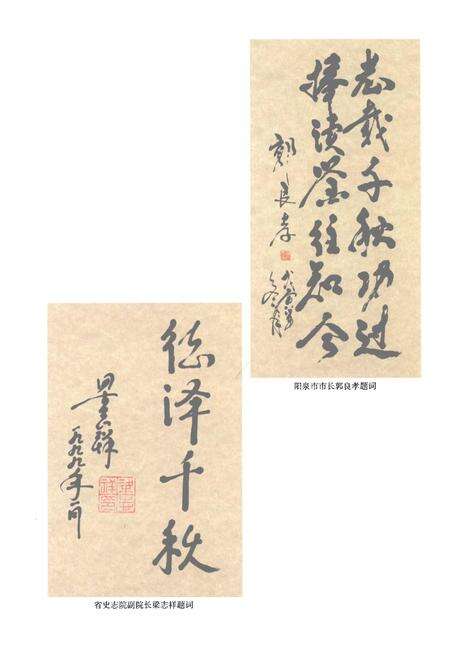 志载千秋功过
捧读鉴往知今
郭良孝
阳泉市市长郭良孝题词
德泽千秋
一九九九年二月
省史志院副院长梁志祥题词